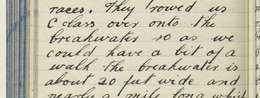 races. They rowed us
C class over onto the
breakwater so as we
could have a bit of a
walk the breakwater is
about 20 fut wide and
nearly a mile long which